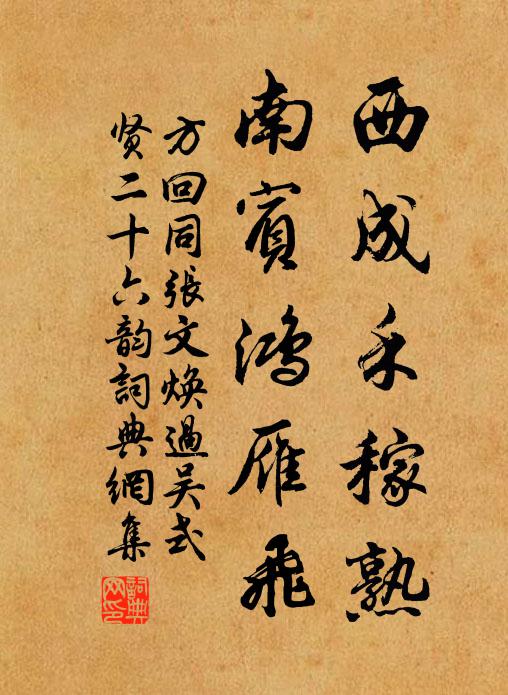 西成禾稼熟
南賓鴻雁飛
方回同張文焕過吴式
贤二十六韵詞典網集
詞典网印